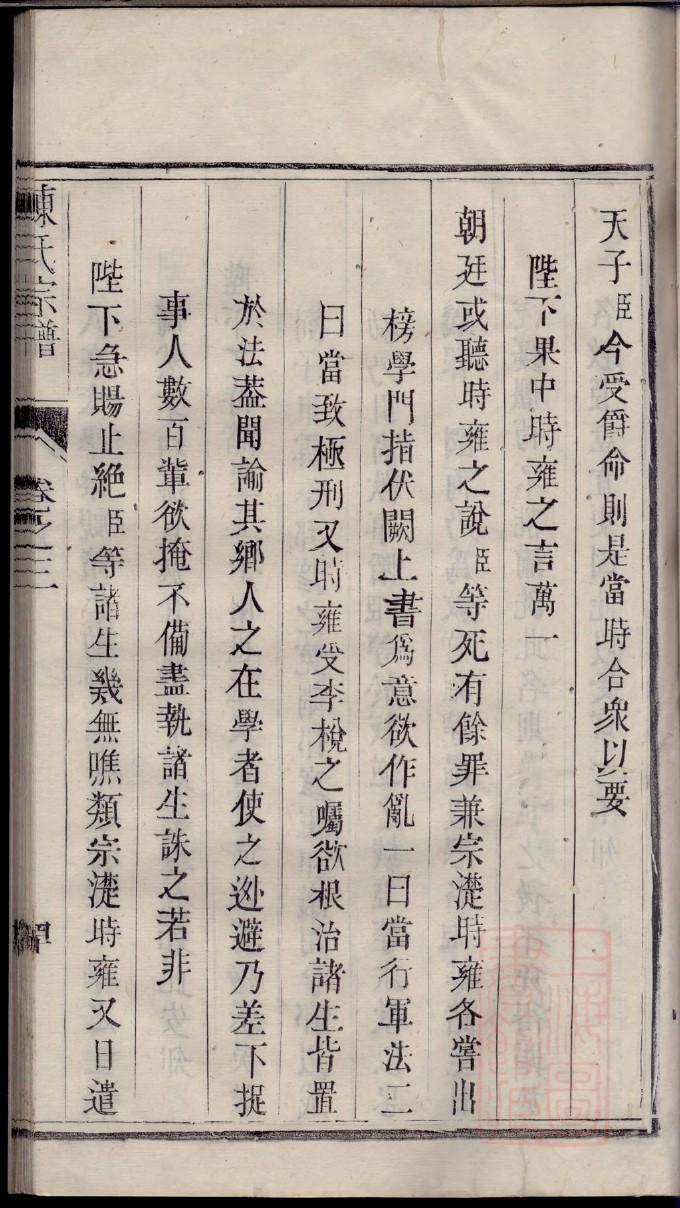 天子臣今受爵命則是當時合衆以要
陛下果中時雍之言萬一
朝廷或聽時雍之說臣等死有餘罪兼宗濋時雍各嘗出
榜學門指伏闕上書爲意欲作亂一曰當行軍法二
曰當致極刑又時雍受李梲之囑欲根治諸生皆置
於法葢聞諭其鄉人之在學者使之迯避乃差下捉
事人數百輩欲掩不備盡執諸生誅之若非
陛下急賜止絕臣等諸生幾無噍類宗濋時雍又日遣
陳氏宗譜
卷之三